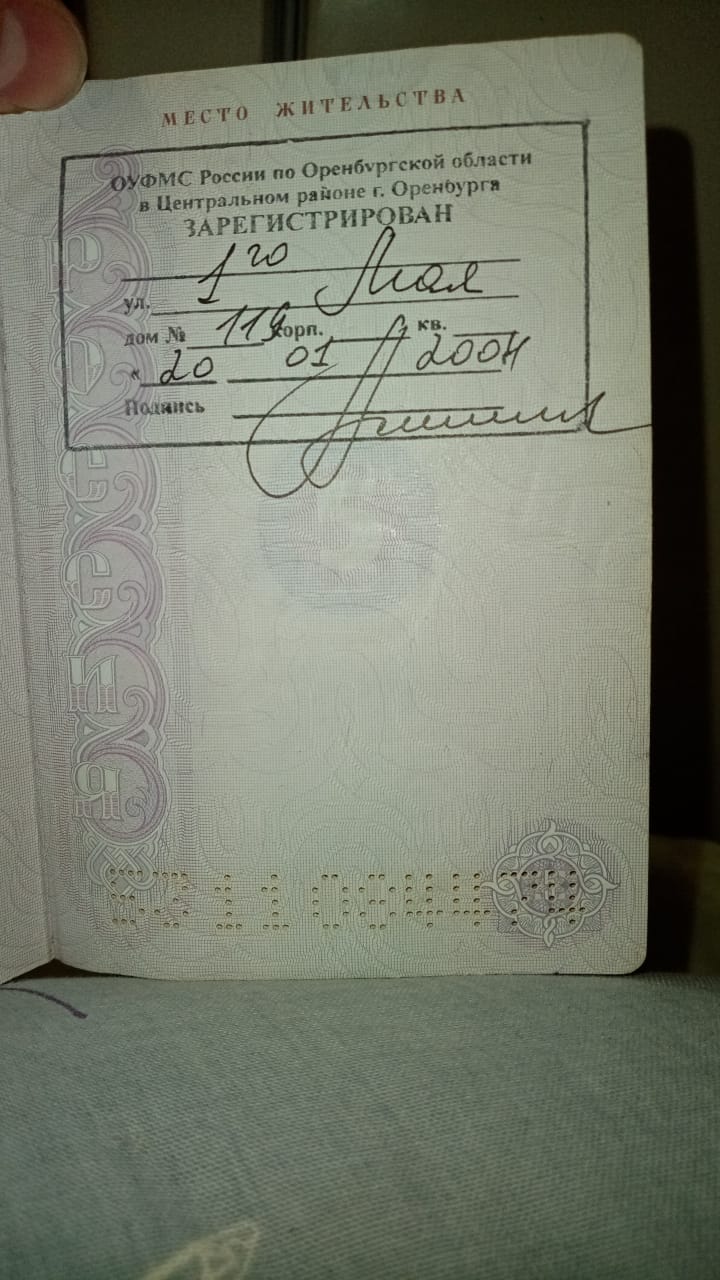 МЕСТО ЖИТЕЛЬСТВА
ОУФМС России по Оренбургской области
в Центральном районе г. Оренбурга
ЗАРЕГИСТРИРОВАН
1го
ул. Мая
дом № корп. кв.
« 20 01 2004
Подпись